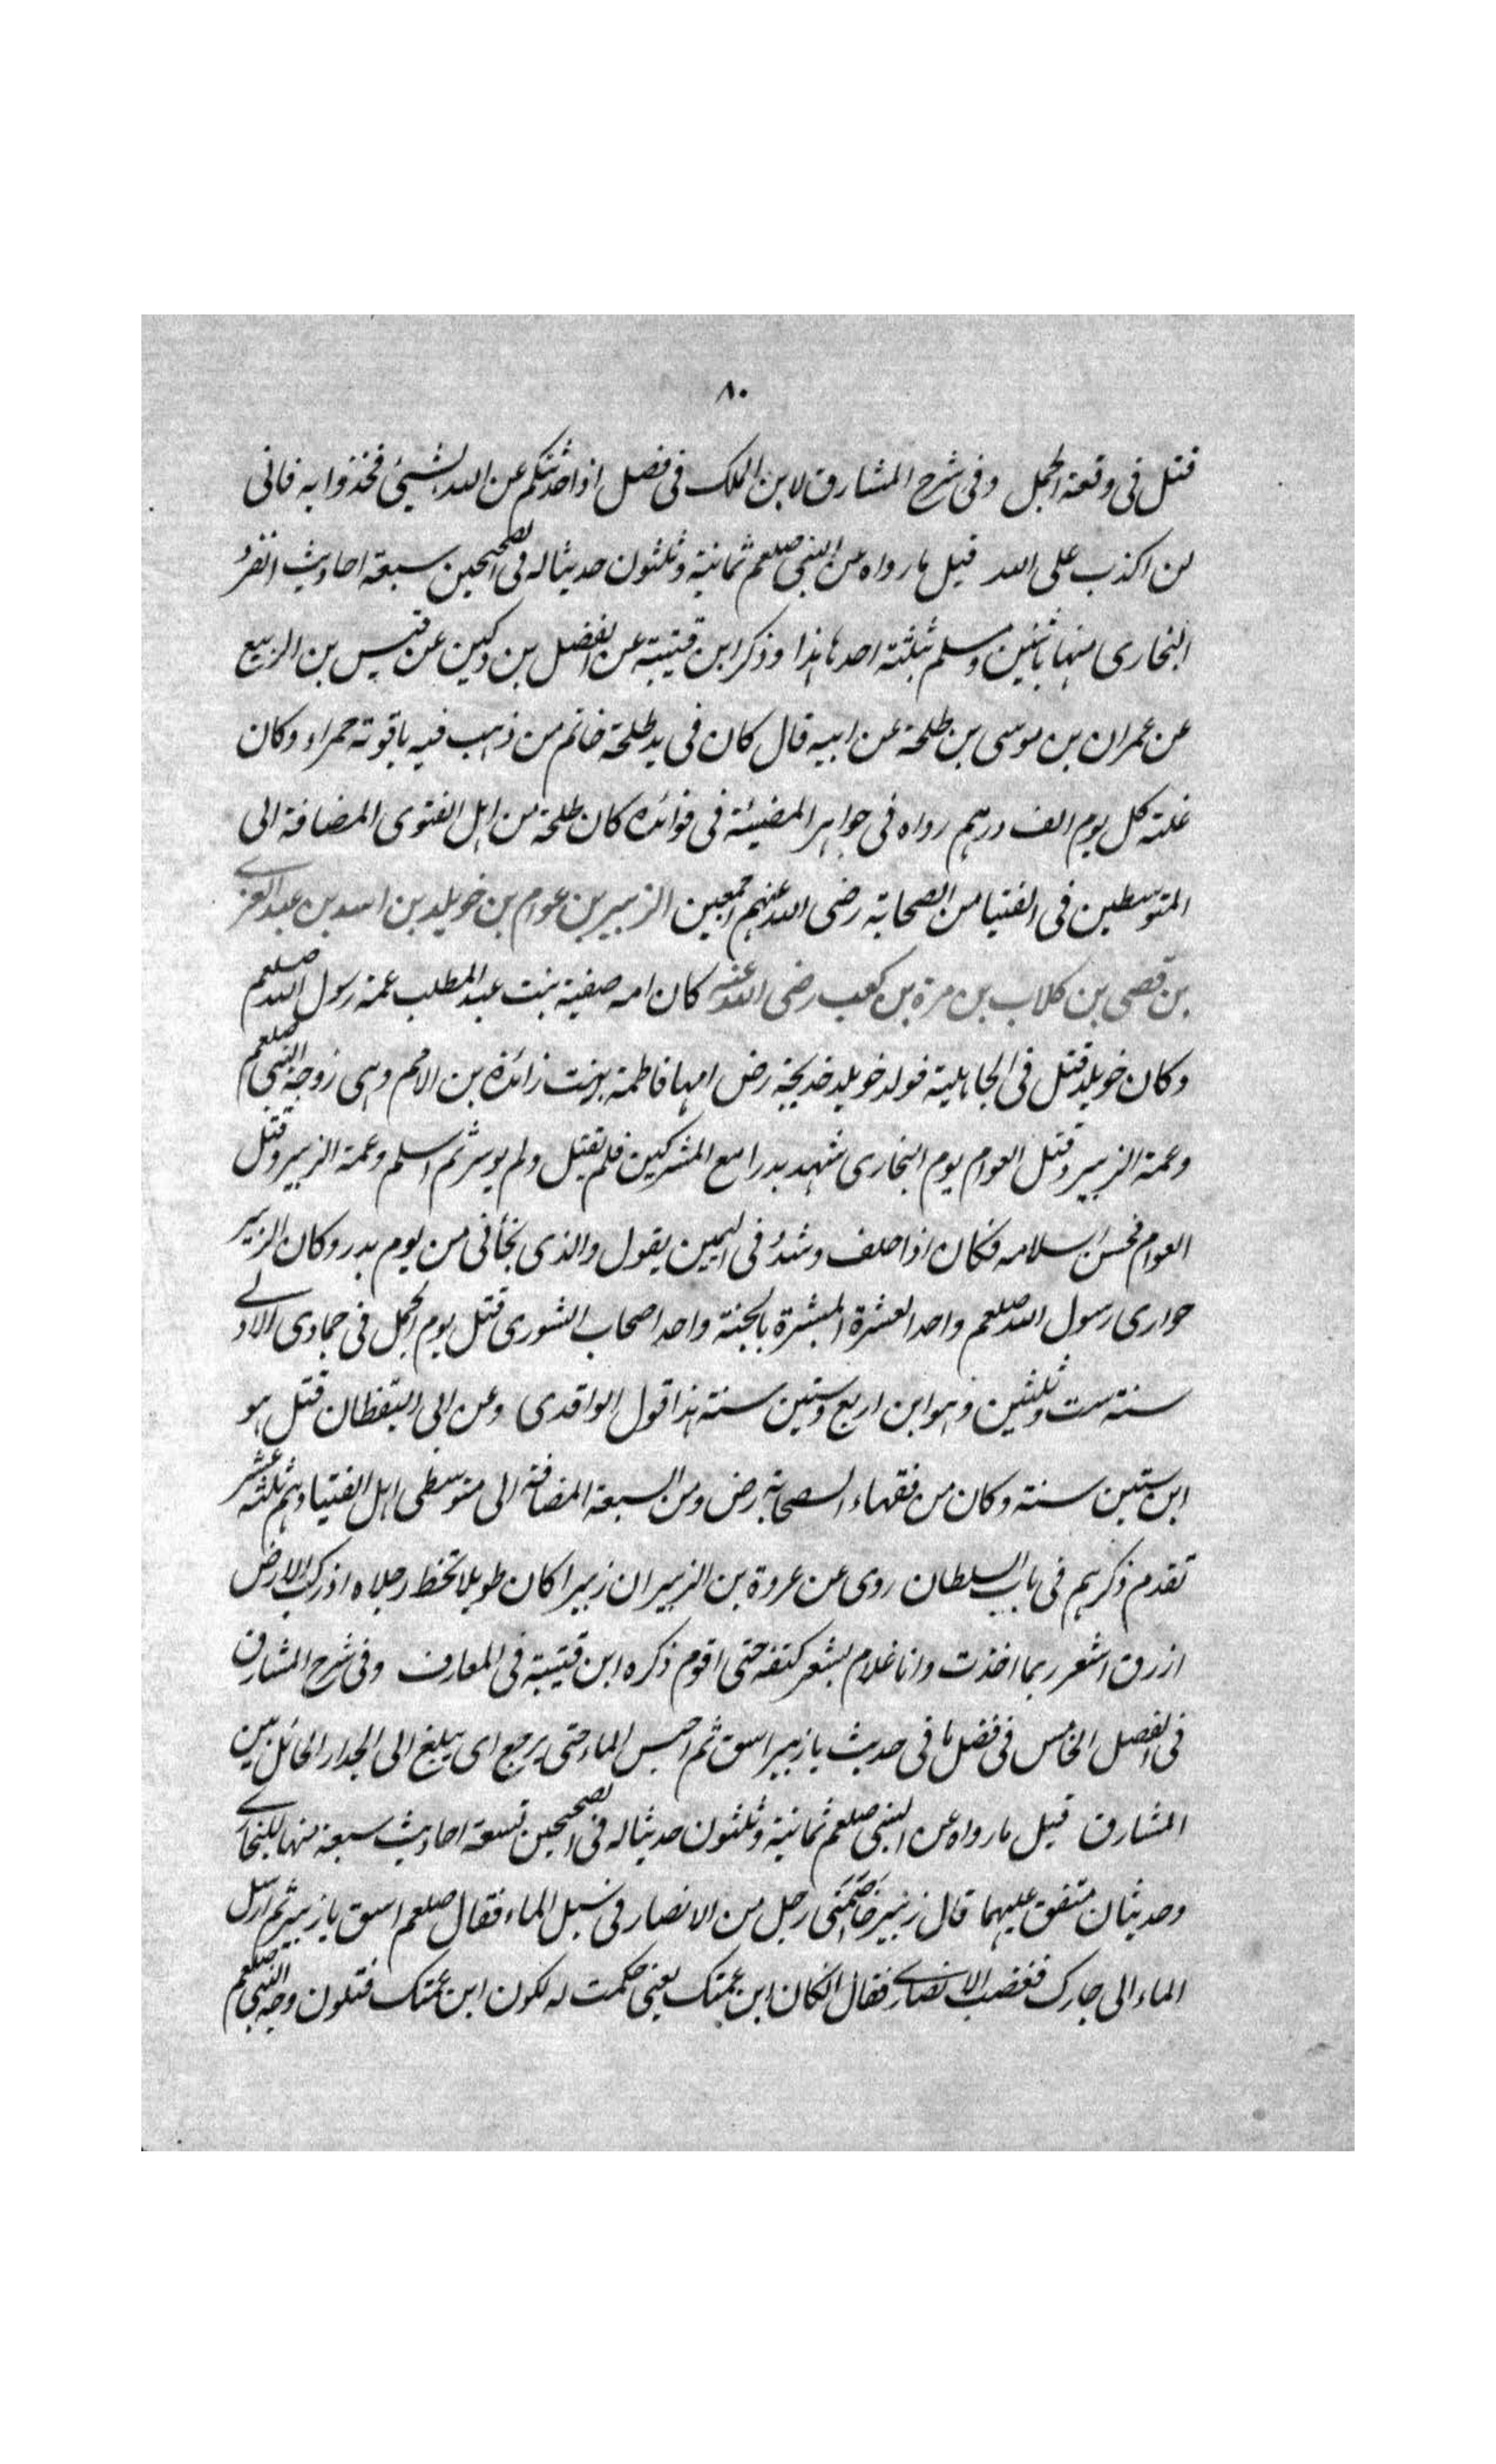 ٨٠
قتل فى وقعة الجمل وفى شرح المشارق لابن الملك فى فصل اذا حدثتكم عن الله بشيئ فخذوا به فانى
لن اكذب على الله قيل ما رواه عن النبى صلعم ثمانية وثلثون حديثا له فى الصحيحين سبعة احاديث انفرد
البخارى منها باثنين ومسلم بثلثة احدها هذا وذكر ابن قتيبة عن الفضل بن دكين عن قيس بن الربيع
عن عمران بن موسى بن طلحة عن ابيه قال كان فى يد طلحة خاتم من ذهب فيه ياقوتة حمراء وكان
غلته كل يوم الف درهم رواه فى جواهر المضيئة فى فوائده كان طلحة من اهل الفتوى المضافة الى
المتوسطين فى الفتيا من الصحابة رضى الله عنهم اجمعين الزبير بن عوام بن خويلد بن اسد بن عبد العزى
بن قصى بن كلاب بن مرة بن كعب رضى الله عنه كان امه صفية بنت عبد المطلب عمة رسول الله صلعم
وكان خويلد قتل فى الجاهلية فولد خويلد خديجة رض امها فاطمة بنت زائدة بن الاصم وهى زوجة النبى صلعم
وعمة الزبير وقتل العوام يوم البخارى شهد بدرا مع المشركين فلم يقتل ولم يوسر ثم اسلم وعمة الزبير وقتل
العوام فحسن اسلامه فكان اذا حلف وشدد فى اليمين يقول والذى نجأنى من يوم بدر وكان الزبير
حوارى رسول الله صلعم واحد العشرة المبشرة بالجنة واحد اصحاب الشورى قتل يوم الجمل فى جمادى الاولى
سنة ست وثلثين وهو ابن اربع وستين سنة هذا قول الواقدى وعن ابى اليقظان قتل هو
ابن ستين سنة وكان من فقهاء الصحابة رض ومن السبعة المضافة الى متوسطى اهل الفتيا وهم ثلثة عشر
تقدم ذكرهم فى باب السلطان روى عن عروة بن الزبير ان زبيرا كان طويلا تخط رجلاه اذ ركب الارض
ازرق اشعر ربما اخذت وانا غلام بشعر كتفه حتى اقوم ذكره ابن قتيبة فى المعارف وفى شرح المشارق
فى الفصل الخامس فى فضل ما فى حديث يا زبير اسق ثم احبس الماء حتى يرجع اى يبلغ الى الجدار الحائل بين
المشارق قيل ما رواه عن النبى صلعم ثمانية وثلثون حديثا له فى الصحيحين تسعة احاديث سبعة منها للبخارى
وحديثان متفق عليهما قال زبير خاصمنى رجل من الانصار فى سبل الماء فقال صلعم اسق يا زبير ثم ارسل
الماء الى جارك فغضب الانصارى فقال ان كان ابن عمتك يعنى حكمت له لكون ابن عمتك فتلون وجه النبى صلعم